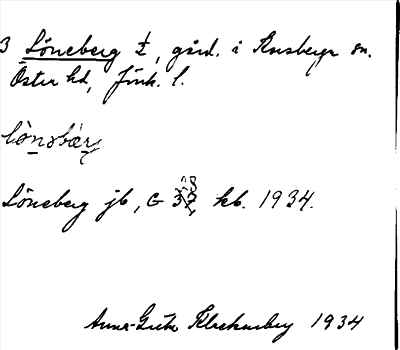 3 Löneberg ½, gård. i Rusbergs sn.
Öster hd, Jönk. l.
Löneberg jb, G 37 kb. 1934.
Anna-Greta Klockenberg 1934